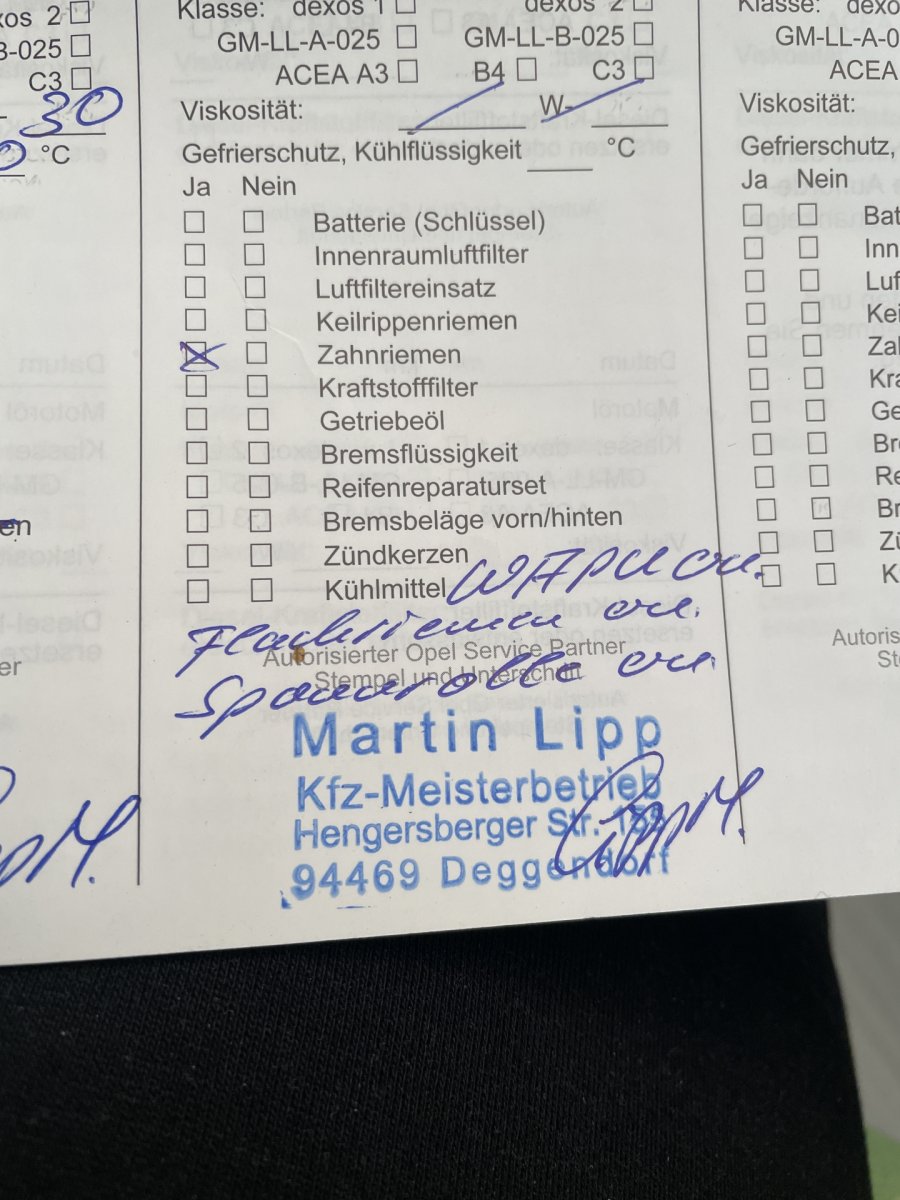 xos 2 ☐
B-025 ☐
C3 ☐
30
°C
en
er
Klasse: dexos 1 ☐ dexos 2 ☐
GM-LL-A-025 ☐ GM-LL-B-025 ☐
ACEA A3 ☐ B4 ☐ C3 ☐
Viskosität: W-
Gefrierschutz, Kühlflüssigkeit °C
Ja Nein
☐ ☐ Batterie (Schlüssel)
☐ ☐ Innenraumluftfilter
☐ ☐ Luftfiltereinsatz
☐ ☐ Keilrippenriemen
☒ ☐ Zahnriemen
☐ ☐ Kraftstofffilter
☐ ☐ Getriebeöl
☐ ☐ Bremsflüssigkeit
☐ ☐ Reifenreparaturset
☐ ☐ Bremsbeläge vorn/hinten
☐ ☐ Zündkerzen
☐ ☐ Kühlmittel WAPU ern.
Flachriemen ern.
Autorisierter Opel Service Partner
Stempel und Unterschrift
Spannrolle ern.
Martin Lipp
Kfz-Meisterbetrieb
Hengersberger Str.
94469 Deggendorf
Lipp M.
Klasse: dexo
GM-LL-A-0
ACEA
Viskosität:
Gefrierschutz,
Ja Nein
☐ ☐ Bat
☐ ☐ Inn
☐ ☐ Luf
☐ ☐ Kei
☐ ☐ Zal
☐ ☐ Kra
☐ ☐ Ge
☐ ☐ Bre
☐ ☐ Re
☐ ☐ Br
☐ ☐ Zü
☐ ☐ K
Autoris
St